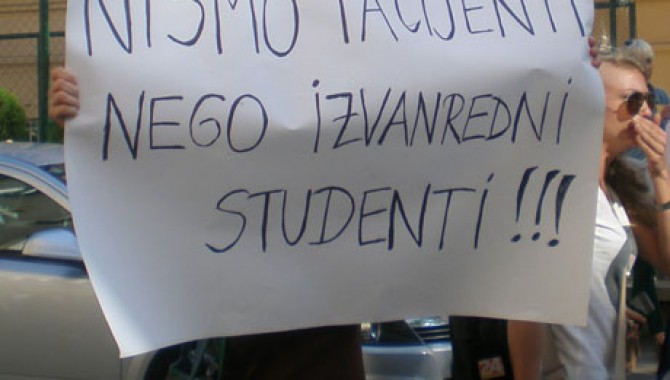 NISMO PACIJENTI
NEGO IZVANREDNI
STUDENTI!!!